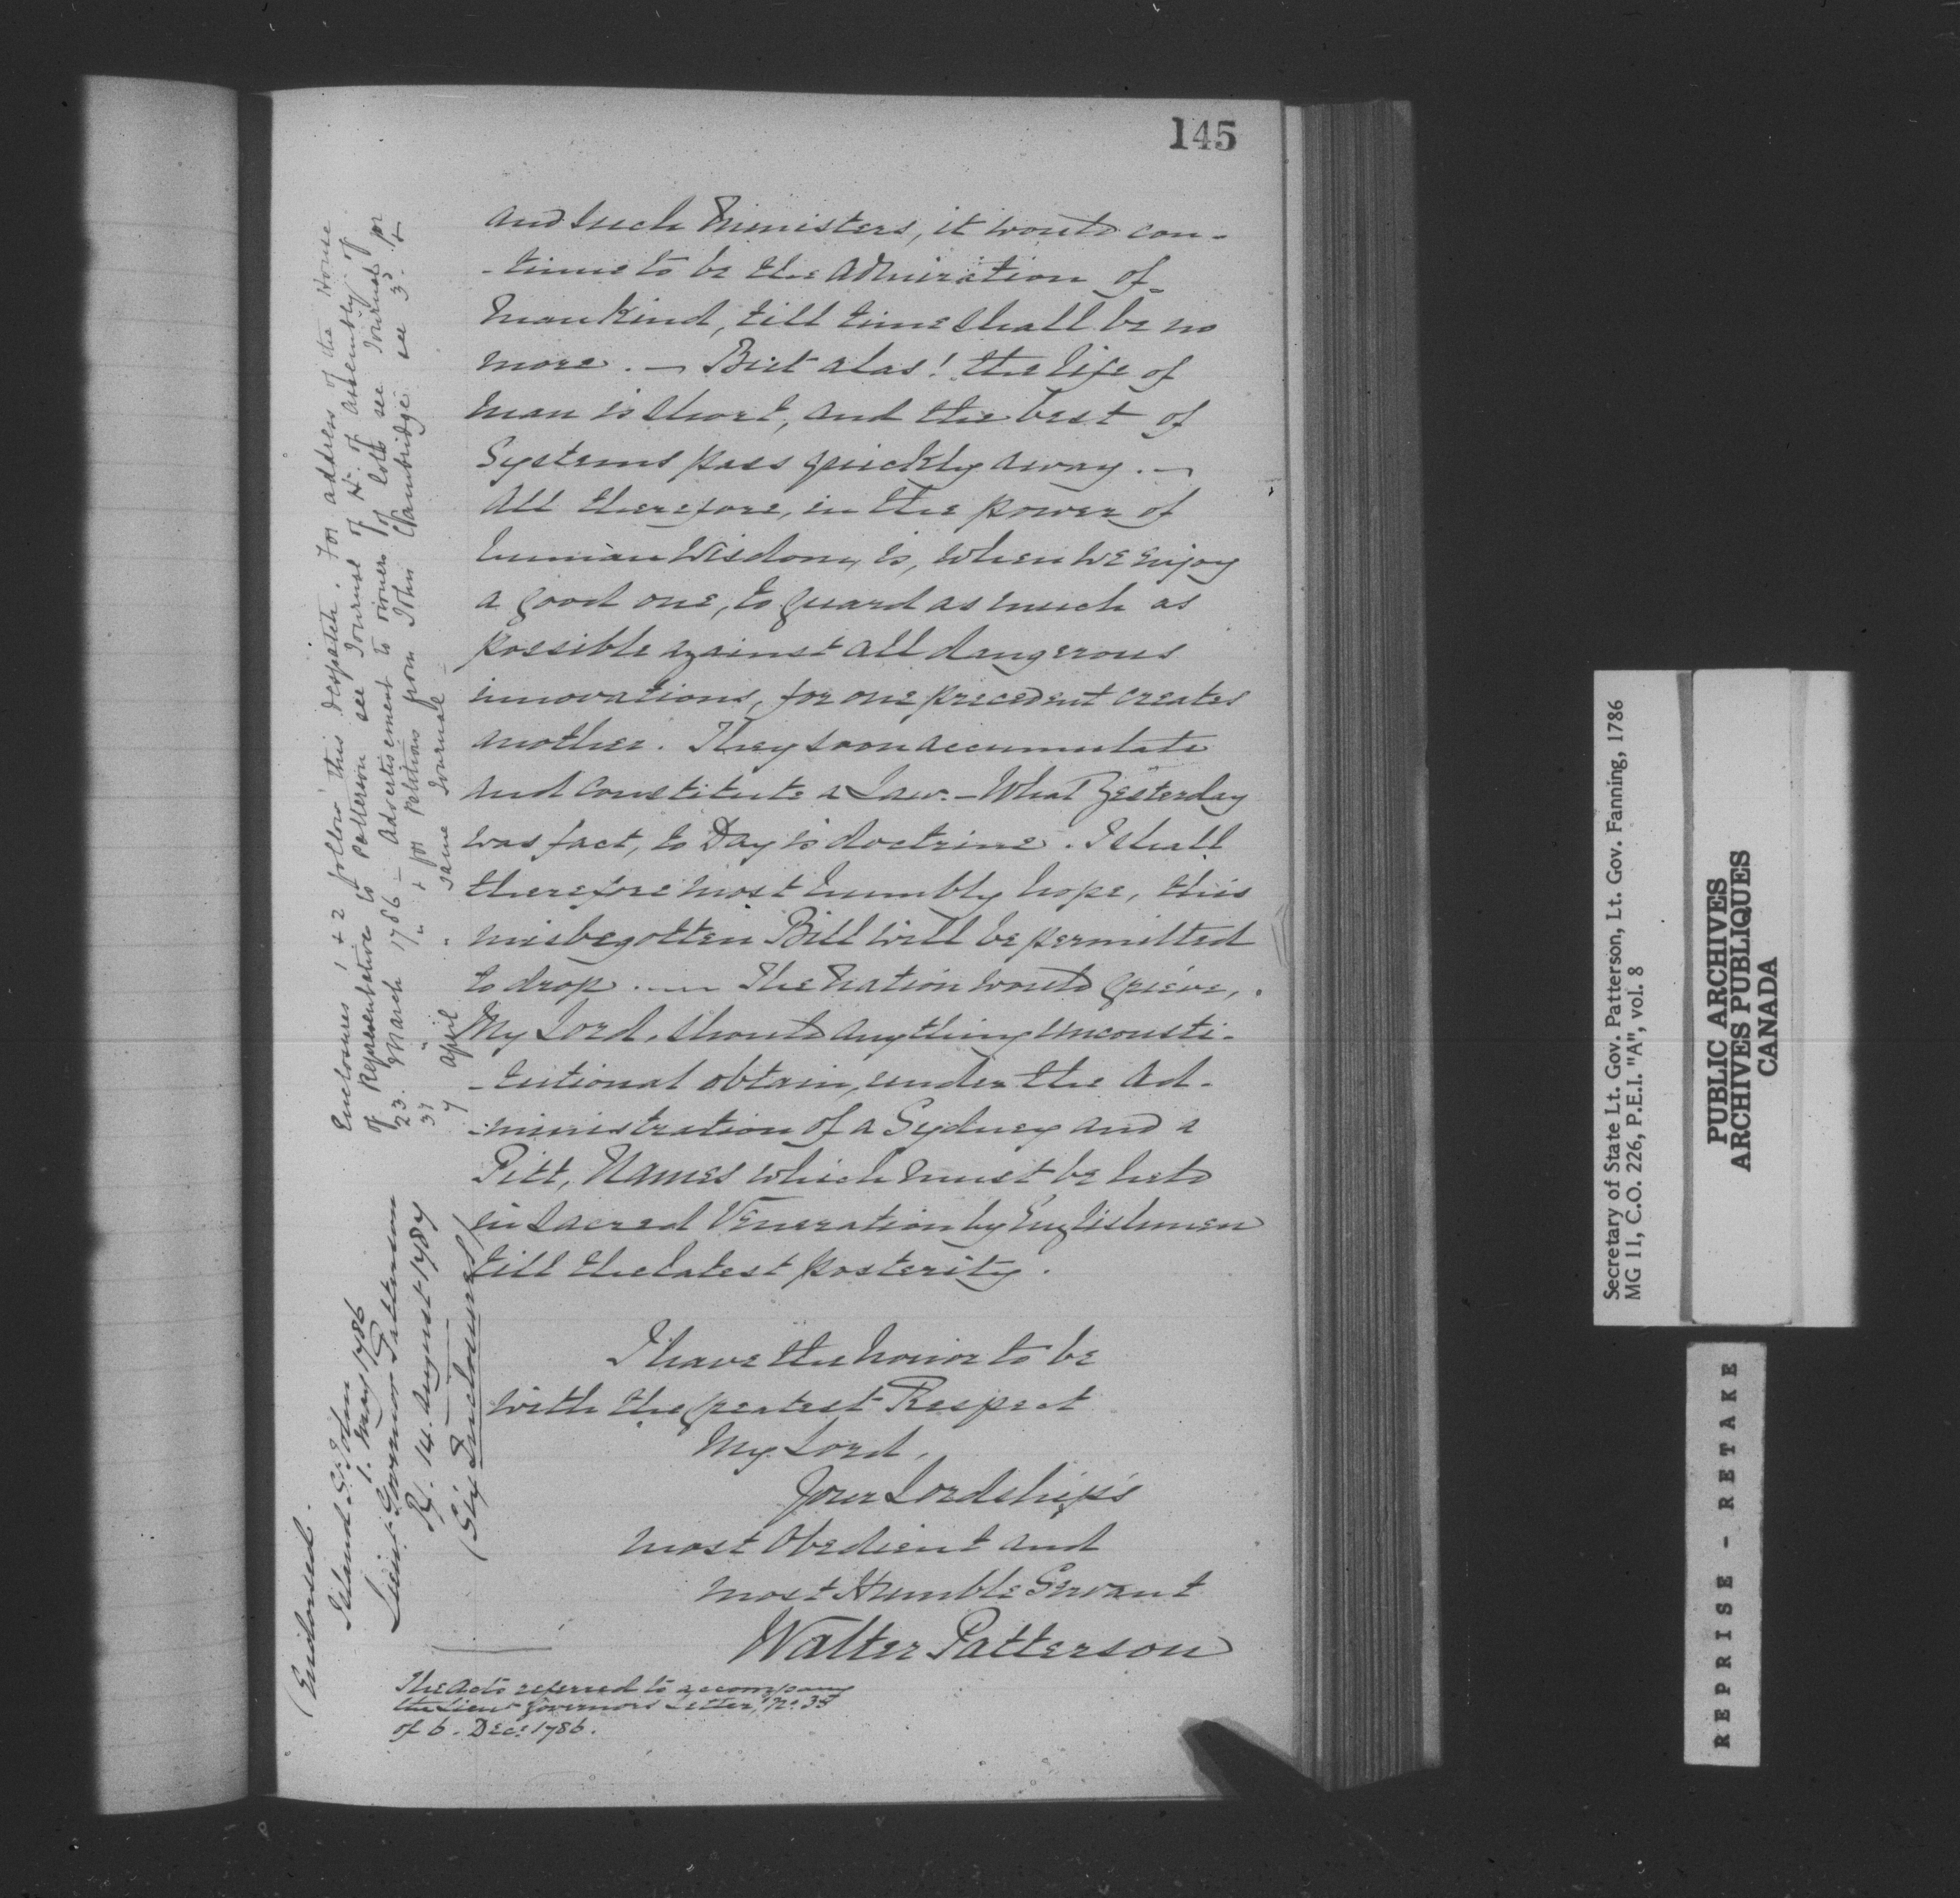 145
and such Ministers, it would con-
-tinue to be the admiration of
Mankind, till time shall be no
more. — But alas! the life of
Man is short, and the best of
Systems pass quickly away. —
All therefore, in the power of
human Wisdom, is, when we enjoy
a good one, to guard as much as
possible against all dangerous
innovations, for one precedent creates
another. They soon accumulate
and constitute a Law. — What Yesterday
was fact, to Day is doctrine. I shall
therefore most humbly hope, this
misbegotten Bill will be permitted
to drop. — The Nation would grieve,
My Lord, should anything unconsti-
-tutional obtain, under the Ad-
-ministration of a Sydney and a
Pitt, Names which must be held
in sacred Veneration by Englishmen
till the latest posterity.
I have the honor to be
with the greatest Respect
My Lord,
Your Lordship's
most Obedient and
most Humble Servant
Walter Patterson
The Acts referred to accompany
the Lieut Governors Letter, No. 35
of 6. Decr. 1786.
Enclosures 1 & 2 follow this despatch. For address of the House
of Representatives to Patterson see Journal of H. of Assembly of
23. March 1786 — Advertisement to owners of lots see Journal for
31 " " & for Petitions from John Cambridge see 3d. &
7 April " same Journal —
(Endorsed.
Island St. John
1. May 1786
Lieut. Governor Patterson
R/. 14. August 1787
(Six Inclosures)
Secretary of State Lt. Gov. Patterson, Lt. Gov. Fanning, 1786
MG 11, C.O. 226, P.E.I. "A", vol. 8
PUBLIC ARCHIVES
ARCHIVES PUBLIQUES
CANADA
REPRISE - RETAKE